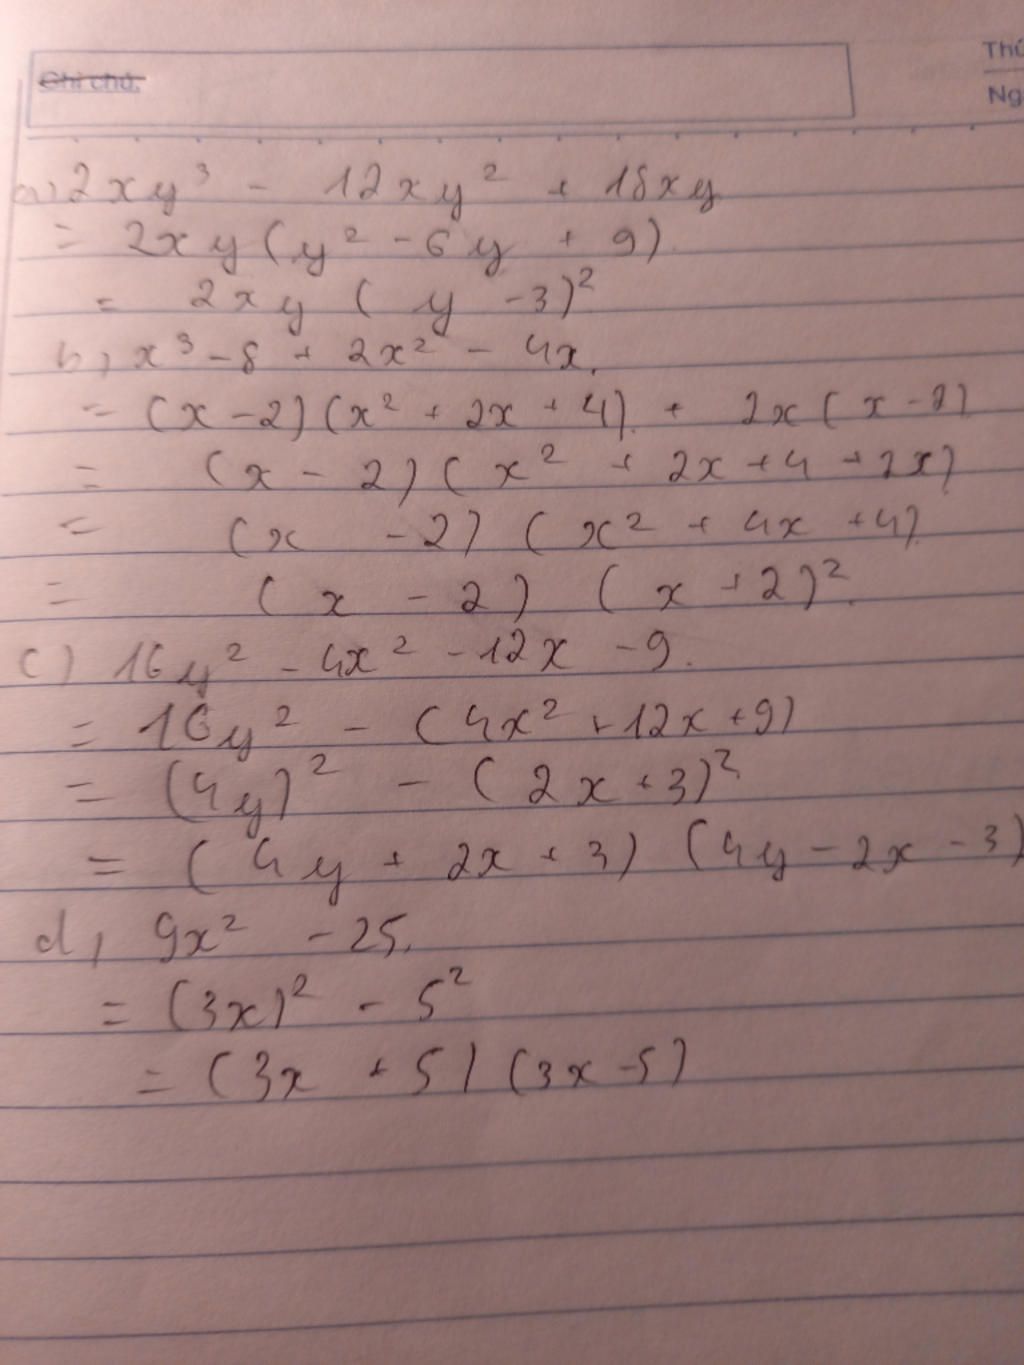 Ghi chú:
Thứ
Ng
a, 2xy³ - 12xy² + 18xy
= 2xy(y² - 6y + 9)
= 2xy (y - 3)²
b, x³ - 8 + 2x² - 4x.
= (x - 2)(x² + 2x + 4) + 2x(x - 2)
= (x - 2)(x² + 2x + 4 + 2x)
= (x - 2)(x² + 4x + 4)
= (x - 2)(x + 2)².
c) 16y² - 4x² - 12x - 9.
= 16y² - (4x² + 12x + 9)
= (4y)² - (2x + 3)²
= (4y + 2x + 3)(4y - 2x - 3)
d, 9x² - 25.
= (3x)² - 5²
= (3x + 5)(3x - 5)